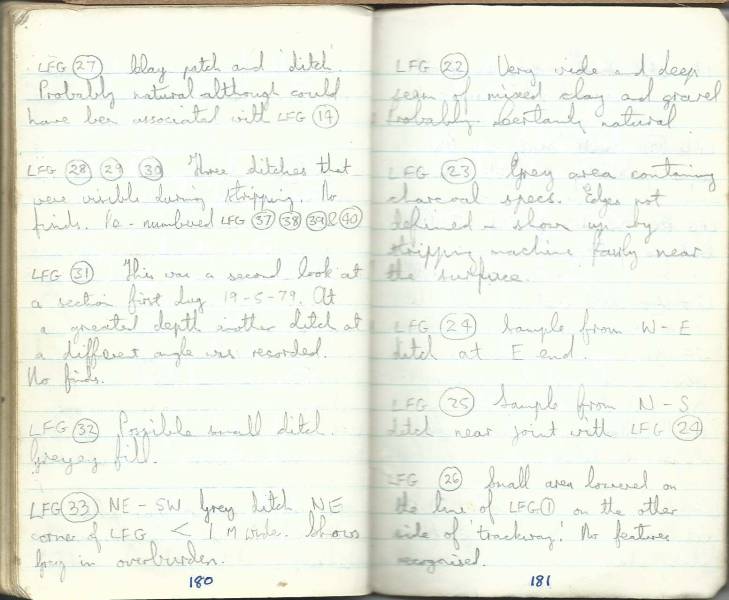 LFG (27) Clay patch and 'ditch'.
Probably natural although could
have been associated with LFG (14)
LFG (28) (29) (30) Three ditches that
were visible during stripping. No
finds. Re-numbered LFG (37) (38) (39) & (40)
LFG (31) This was a second look at
a section first dug 19-5-79. At
a greater depth another ditch at
a different angle was recorded.
No finds.
LFG (32) Possible small ditch.
Greyey fill.
LFG (33) NE-SW Grey ditch NE
corner of LFG < 1 M wide. Shows
grey in overburden.
180
LFG (22) Very wide and deep
seam of mixed clay and gravel
Probably Certainly natural.
LFG (23) Grey area containing
charcoal specs. Edges not
defined - shown up by
stripping machine fairly near
the surface.
LFG (24) Sample from W-E
ditch at E end.
LFG (25) Sample from N-S
ditch near joint with LFG (24)
LFG (26) Small area lowered on
the line of LFG (1) on the other
side of 'trackway'. No features
recognised.
181